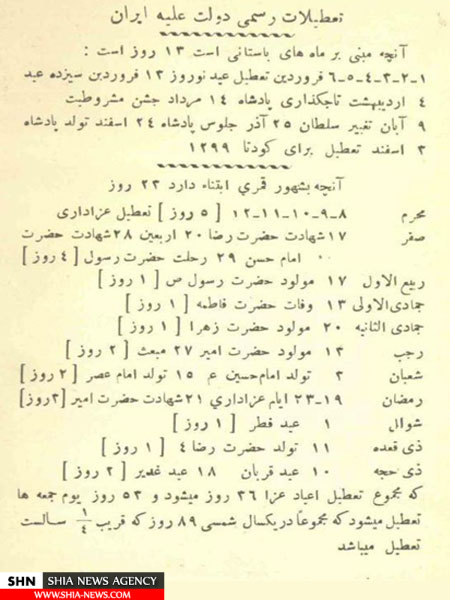 تعطیلات رسمی دولت علیه ایران
آنچه مبنی بر ماه های باستانی است ۱۳ روز است :
۱-۲-۳-۴-۵-۶ فروردین تعطیل عید نوروز ۱۳ فروردین سیزده عید
۴ اردیبهشت تاجگذاری پادشاه ۱۴ مرداد جشن مشروطیت
۹ آبان تغییر سلطان ۲۵ آذر جلوس پادشاه ۲۴ اسفند تولد پادشاه
۳ اسفند تعطیل برای کودتا ۱۲۹۹
آنچه بشهور قمری ابتناء دارد ۲۳ روز
محرم ۸-۹-۱۰-۱۱-۱۲ [ ۵ روز ] تعطیل عزاداری
صفر ۱۷ شهادت حضرت رضا ۲۰ اربعین ۲۸ شهادت حضرت
امام حسن ۲۹ رحلت حضرت رسول [ ۴ روز ]
ربیع الاول ۱۷ مولود حضرت رسول ص [ ۱ روز ]
جمادی الاولی ۱۳ وفات حضرت فاطمه [ ۱ روز ]
جمادی الثانیه ۲۰ مولود حضرت زهرا [ ۱ روز ]
رجب ۱۳ مولود حضرت امیر ۲۷ مبعث [ ۲ روز ]
شعبان ۳ تولد امام حسین ع ۱۵ تولد امام عصر [ ۲ روز ]
رمضان ۱۹-۲۳ ایام عزاداری ۲۱ شهادت حضرت امیر [ ۳ روز ]
شوال ۱ عید فطر [ ۱ روز ]
ذی قعده ۱۱ تولد حضرت رضا ع [ ۱ روز ]
ذی حجه ۱۰ عید قربان ۱۸ عید غدیر [ ۲ روز ]
که مجموع تعطیل اعیاد عزا ۳۶ روز میشود و ۵۳ روز یوم جمعه ها
تعطیل میشود که مجموعاً در یکسال شمسی ۸۹ روز که قریب ۱/۴ سالست
تعطیل میباشد
SHN SHIA NEWS AGENCY
WWW.SHIA-NEWS.COM